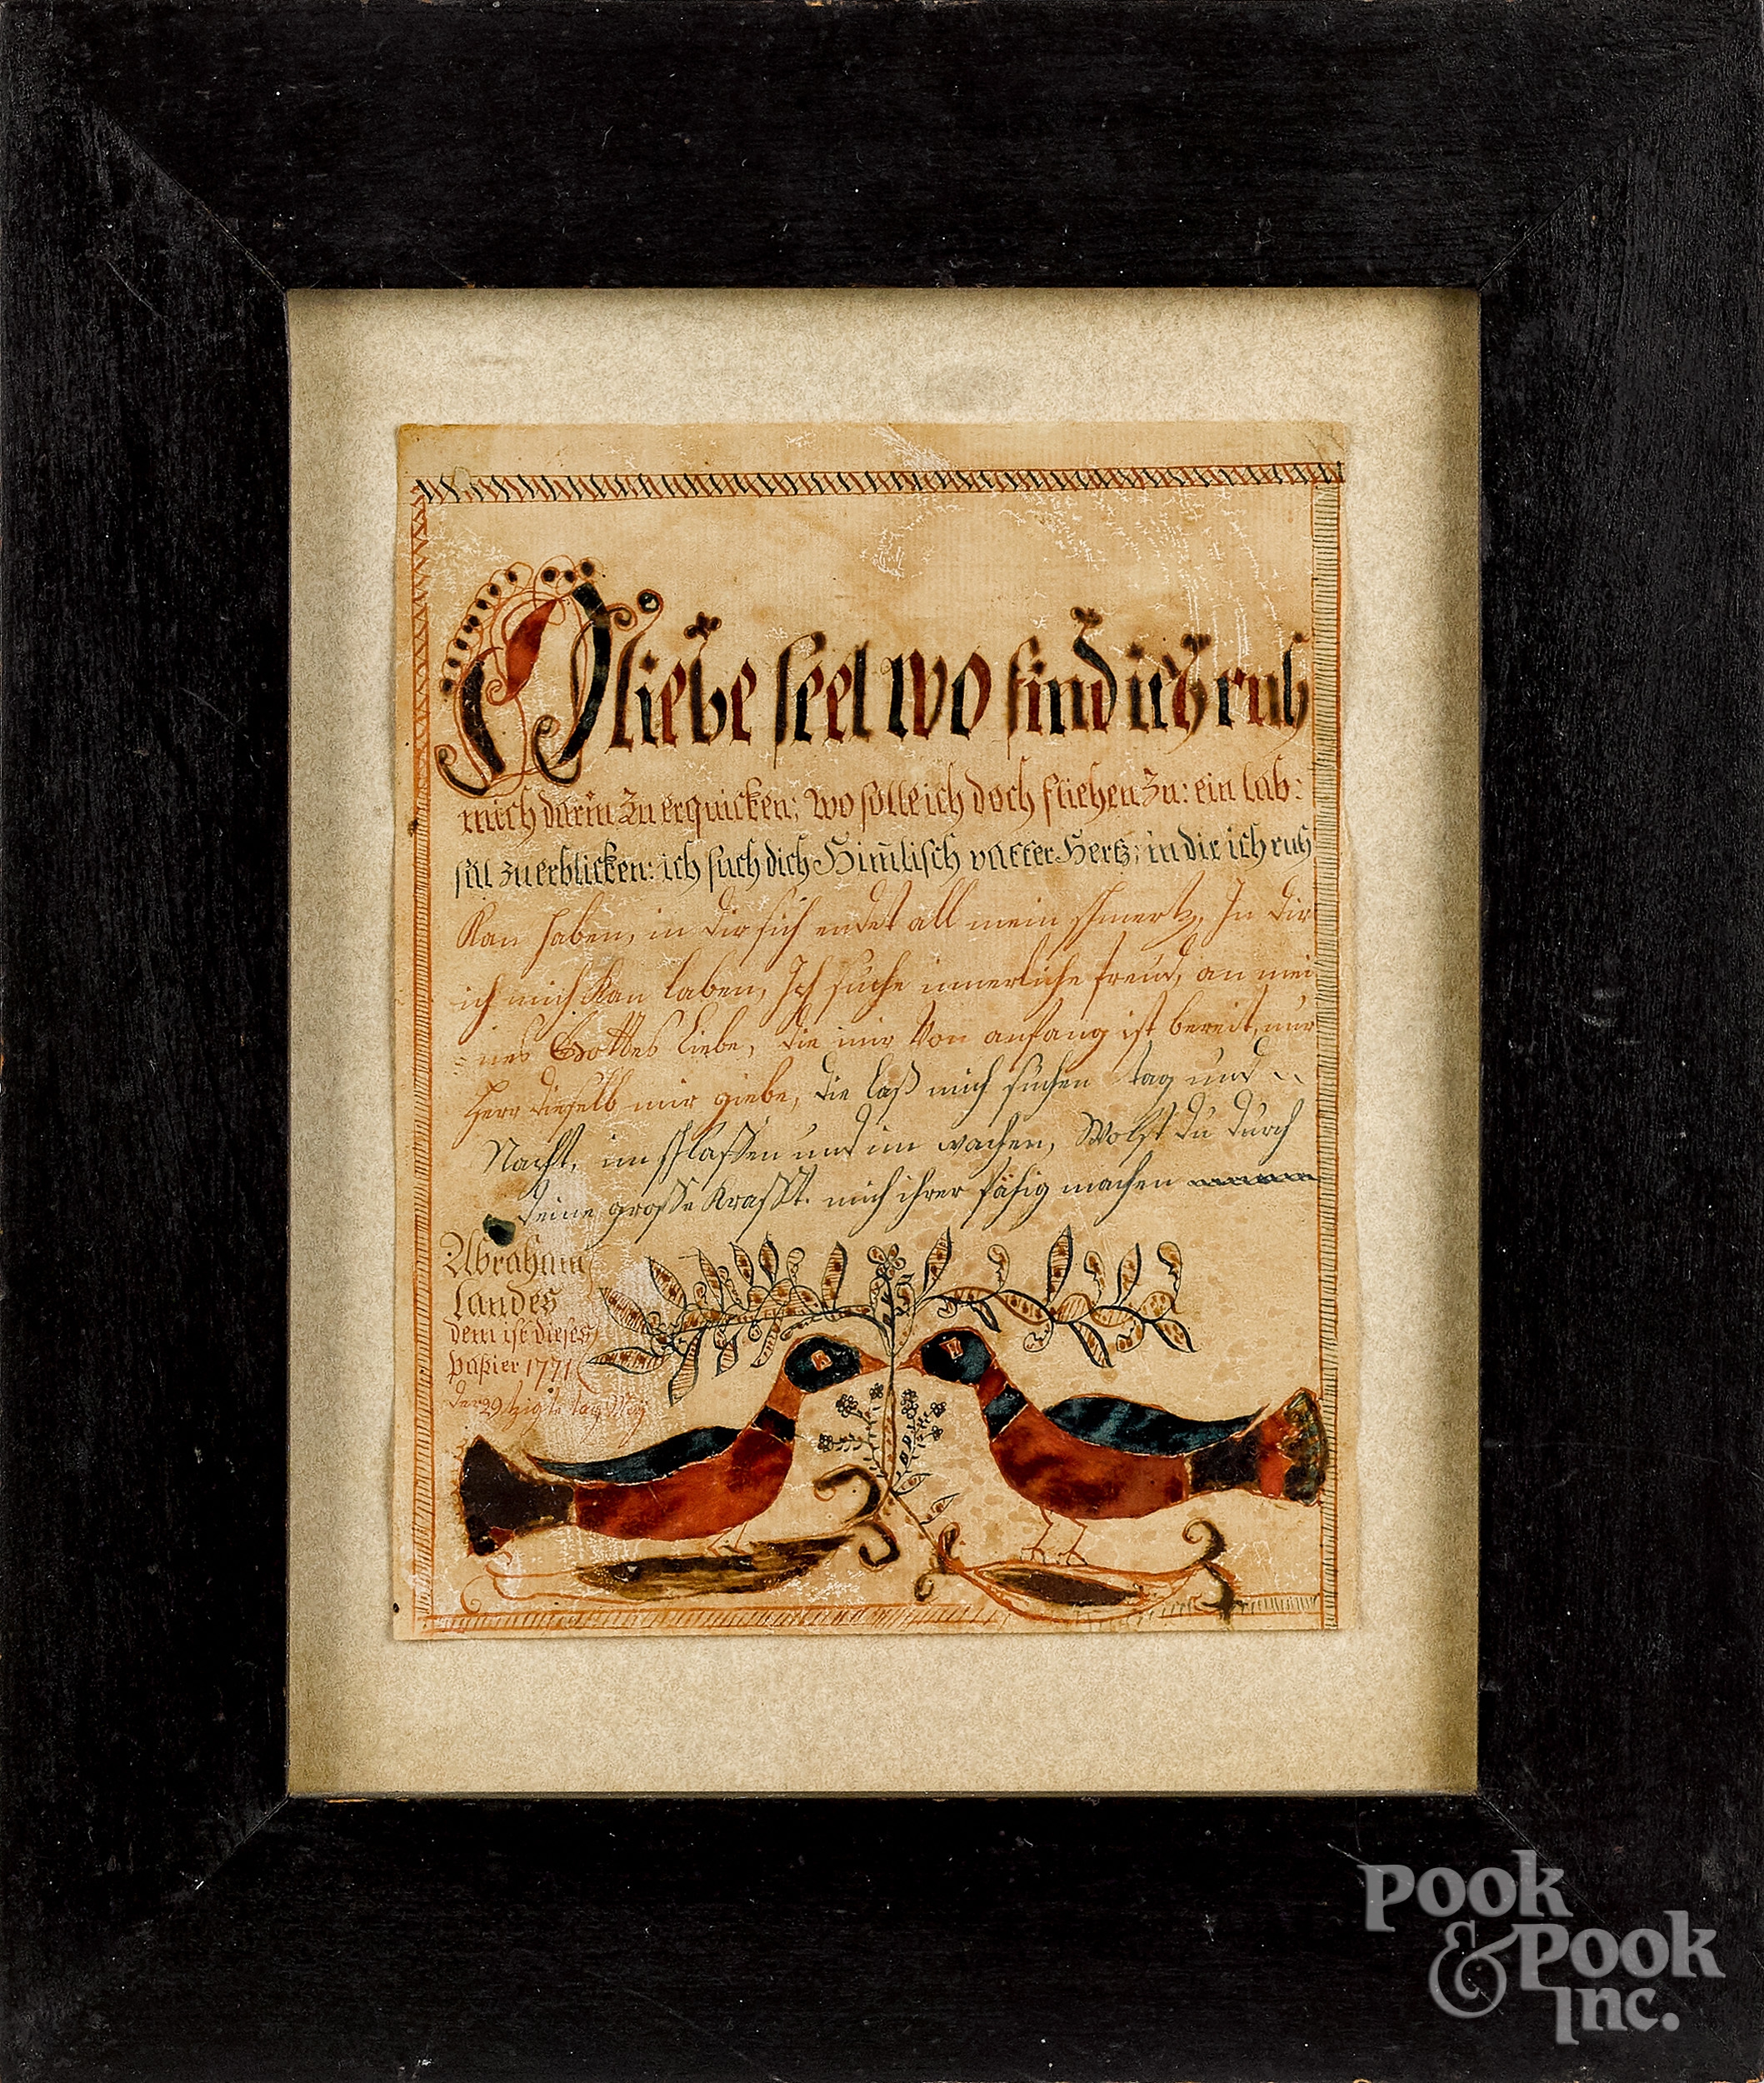 O liebe seel wo find ich ruh
mich darin zu erquicken; wo solle ich doch fliehen zu: ein lab:
sal zu erblicken: ich such dich Him̅lisch vatter Hertz; in dir ich ruh
Kan haben, in dir sich endet all mein schmertz, In dir
ich mich Kan laben, Ich suche innerliche freud, an mei
nes Gottes Liebe, die mir Von anfang ist bereit, nur
Herr dieselb mir giebe, die laß mich suchen tag und
Nacht, im schlaffen und im wachen, Wolst du durch
deine grosse Krafft. mich ihrer fähig machen
Abraham
Landes
dem ist dieses
papier 1771
der 29zigte tag Mey
Pook
& Pook
Inc.